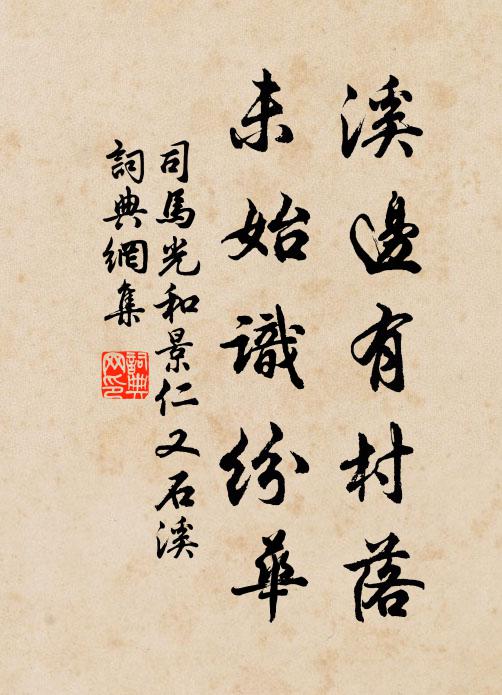 溪邊有村落
未始識紛華
司馬光和景仁又石溪
詞典網集
詞典網印